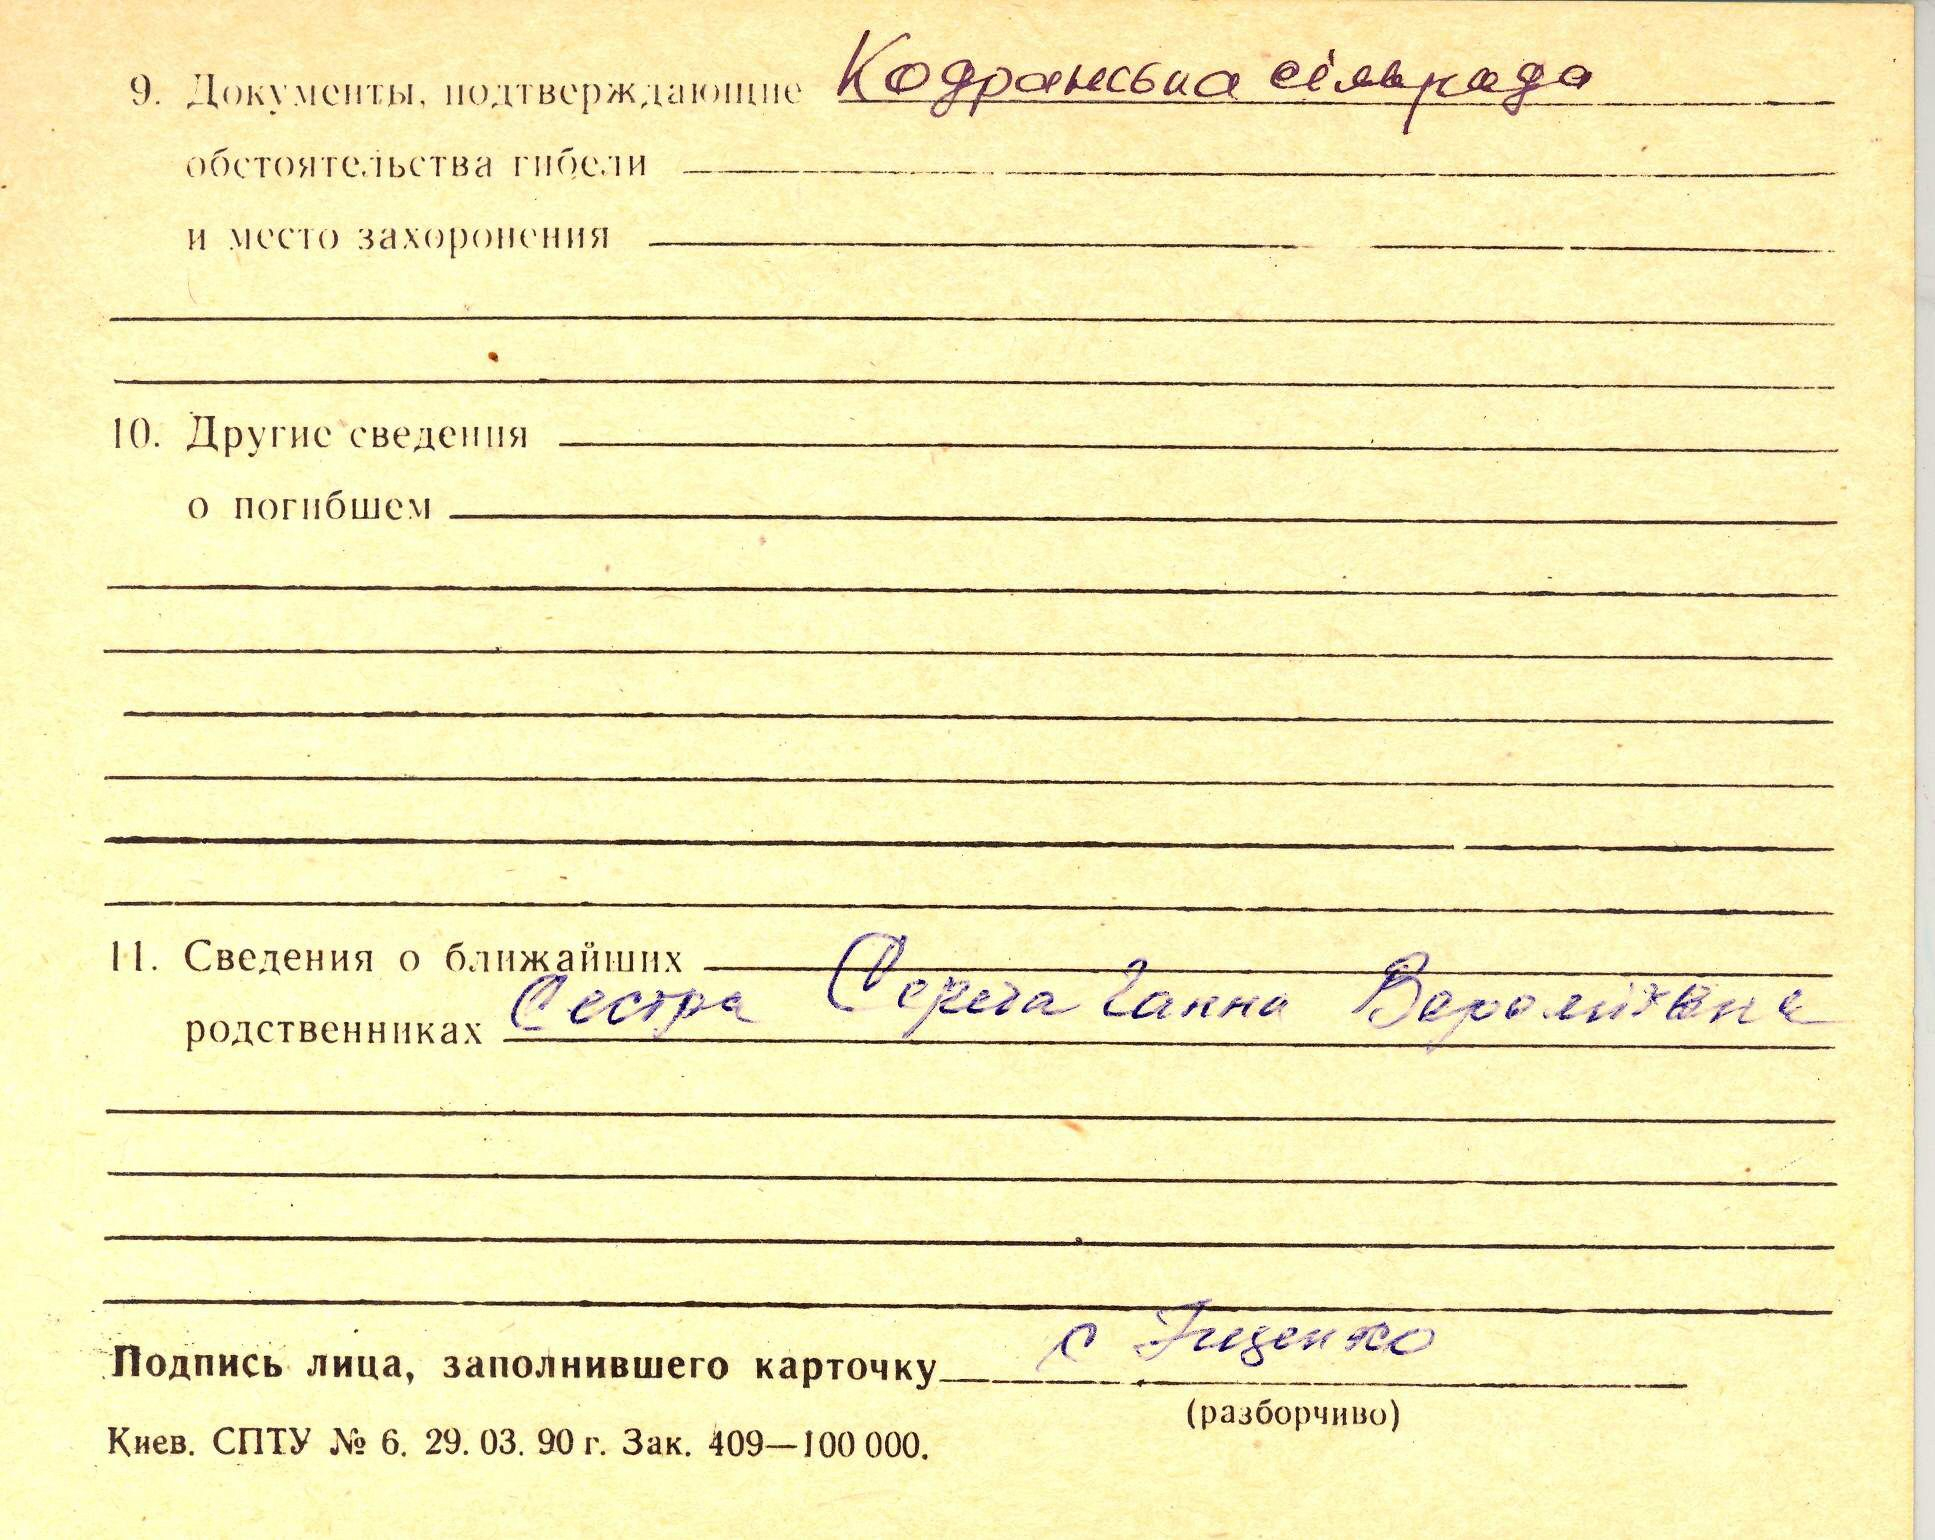 9. Документы, подтверждающие Кодранська сільрада
обстоятельства гибели
и место захоронения
10. Другие сведения
о погибшем
11. Сведения о ближайших
родственниках Сестра Ганна
Подпись лица, заполнившего карточку
(разборчиво)
Киев. СПТУ № 6. 29. 03. 90 г. Зак. 409—100 000.